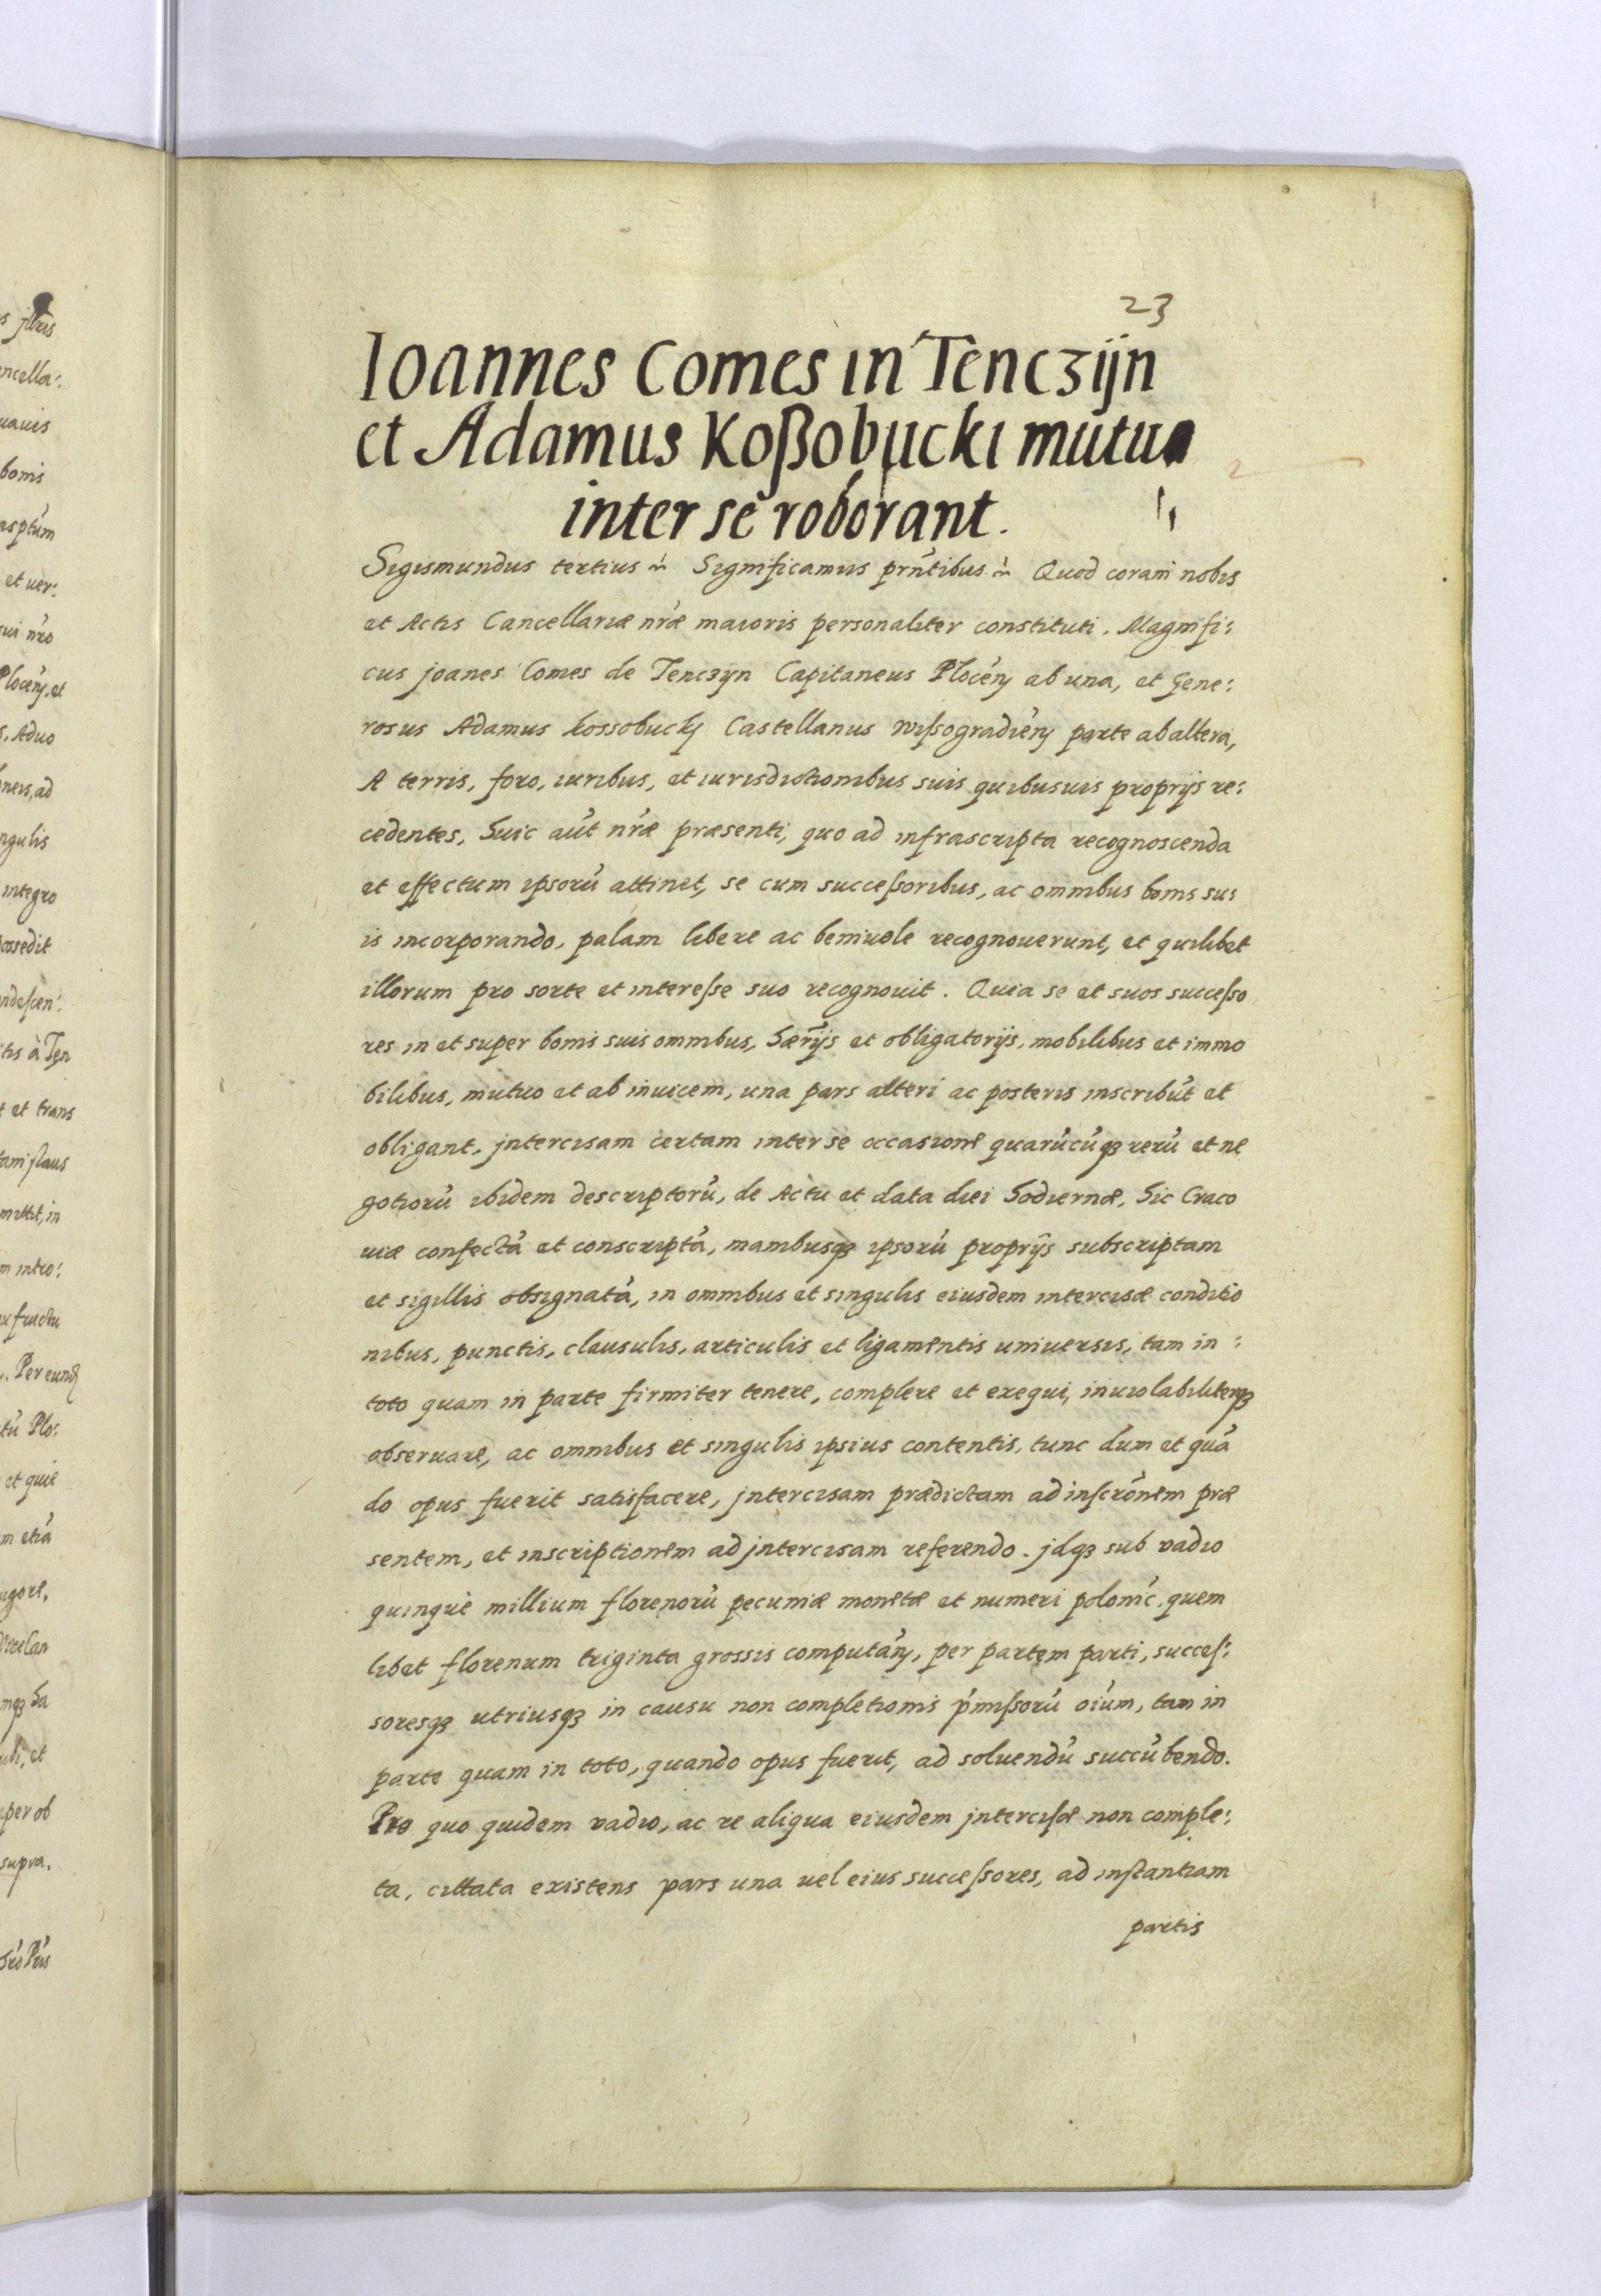 23
Ioannes Comes in Tenczijn
et Adamus Koßobucki mutua
inter se roborant.
Sigismundus tertius Significamus prñtibus Quod coram nobis
et Actis Cancellariæ nr̃æ maioris personaliter constituti. Magnifi:
cus joanes Comes de Tenczyn Capitaneus Plocéń ab una, et Gene:
rosus Adamus kossobuckj Castellanus wißogradień parte ab altera,
A terris, foro, iuribus, et iurisdictionibus suis quibusuis proprijs re:
cedentes, huic aũt nr̃æ præsenti, quo ad infrascripta recognoscenda
et effectum ipsorũ attinet, se cum successoribus, ac omnibus bonis su:
is incorporando, palam libere ac beniuole recognouerunt, et quilibet
illorum pro sorte et interesse suo recognouit. Quia se et suos successo
res in et super bonis suis omnibus, hær̃ijs et obligatorijs, mobilibus et immo
bilibus, mutuo et ab inuicem, una pars alteri ac posteris inscribũt et
obligant, jntercisam certam inter se occasione quarũcũqꝫ rerũ et ne
gotiorũ ibidem descriptorũ, de Actu et data diei hodiernæ, hic Craco
uiæ confectã et conscriptã, manibusqꝫ ipsorũ proprijs subscriptam
et sigillis obsignatã, in omnibus et singulis eiusdem intercisæ conditio
nibus, punctis, clausulis, articulis et ligamentis uniuersis, tam in:
toto quam in parte firmiter tenere, complere et exequi, inuiolabiliterqꝫ
obseruare, ac omnibus et singulis ipsius contentis, tunc dum et quã
do opus fuerit satisfacere, jntercisam prædictam ad inscrõnem præ
sentem, et inscriptionem ad jntercisam referendo. jdqꝫ sub vadio
quinque millium florenorũ pecuniæ monetæ et numeri poloníc, quem
libet florenum triginta grossis computãń, per partem parti, succes:
soresqꝫ utriusqꝫ in causu non completionis p̃missorũ oĩum, tam in
parte quam in toto, quando opus fuerit, ad soluendũ succũbendo.
Pro quo quidem vadio, ac re aliqua eiusdem jntercisæ non comple:
ta, cittata existens pars una uel eius successores, ad instantiam
partis